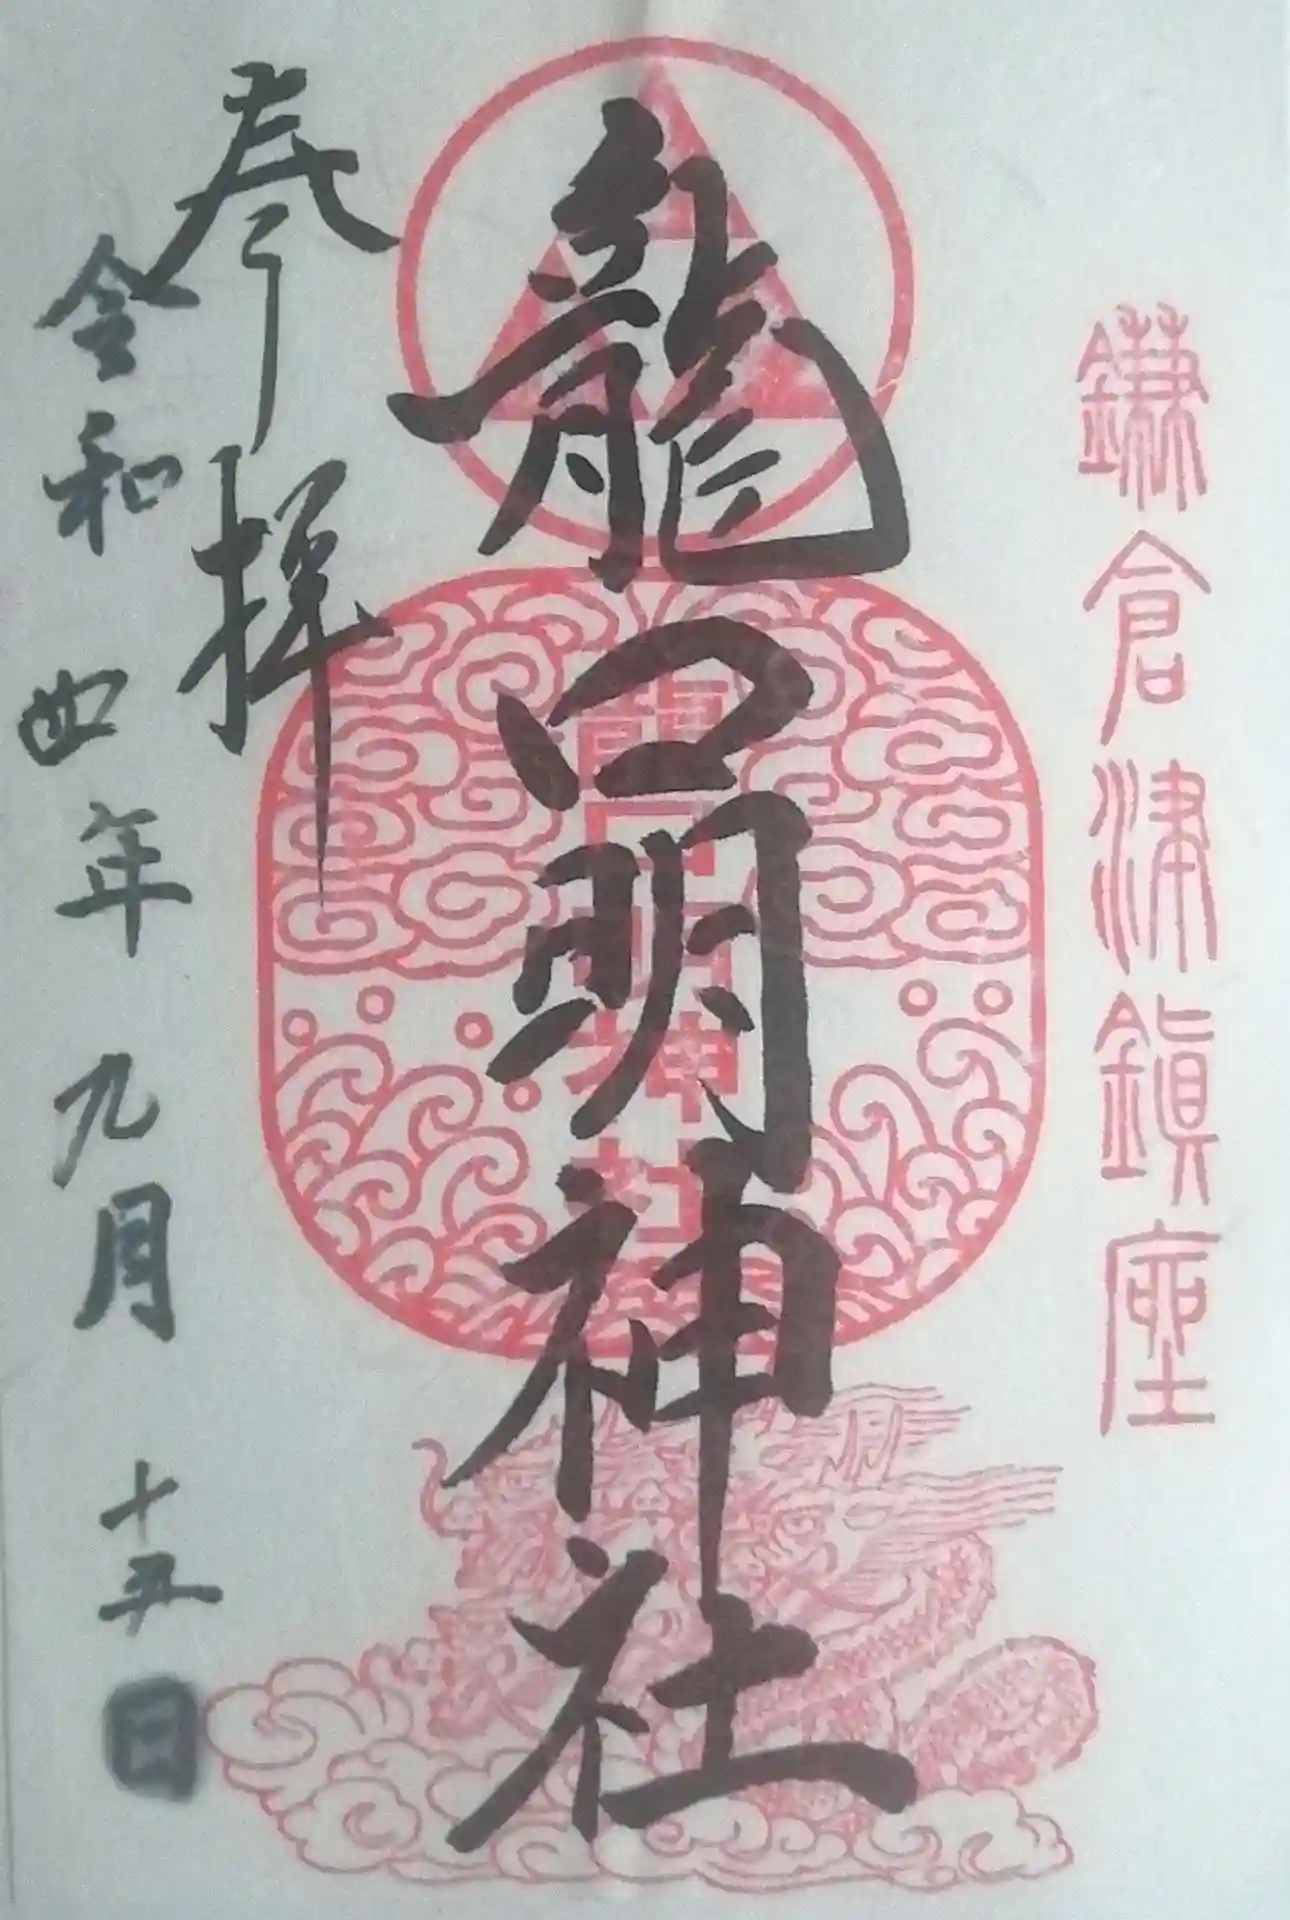 鎌倉津鎮座
龍口明神社
龍口明神社
参拝
令和四年九月十五日